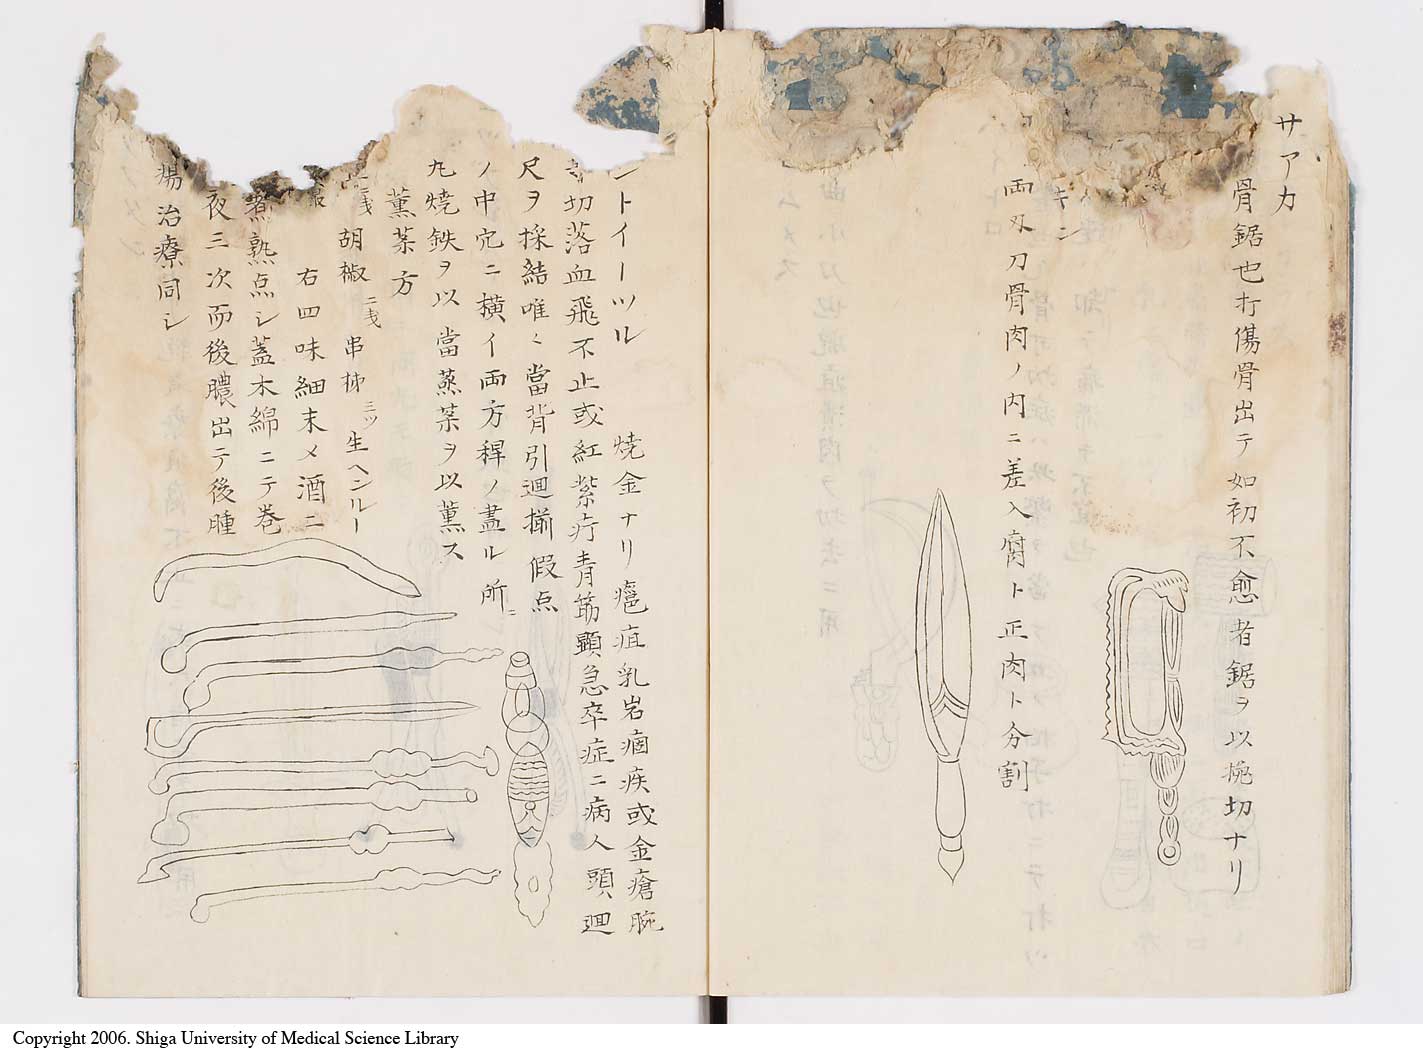 サアカ
骨鋸也打傷骨出テ如初不愈者鋸ヲ以挽切ナリ
キン
両刄刀骨肉ノ内ニ差入腐ト正肉ト分割
ントイーツル
焼金ナリ瘡疽乳岩痼疾或金瘡腕
切落血飛不止或紅紫疔青筋顕急卒症ニ病人頭廻
尺ヲ採結唯〻當背引廻揃假点
ノ中宂ニ横イ両方稈ノ盡ル所ニ
丸焼鉄ヲ以當蒸茶ヲ以薫ス
薫茶方
胡椒 二戋 串柿 三ツ 生ヘンルー
右四味細末〆酒ニ
煮熟点シ蓋木綿ニテ巻
夜三次而後膿出テ後腫
瘍治療同シ
Copyright 2006. Shiga University of Medical Science Library